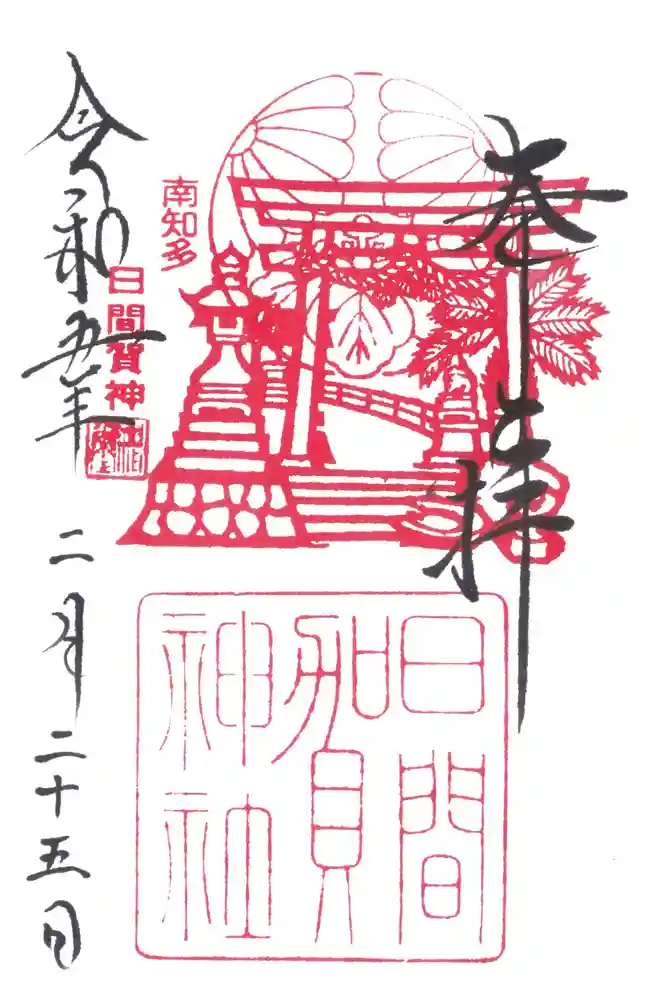 奉拝
南知多
日間賀神社
日間賀神社
令和五年 二月二十五日